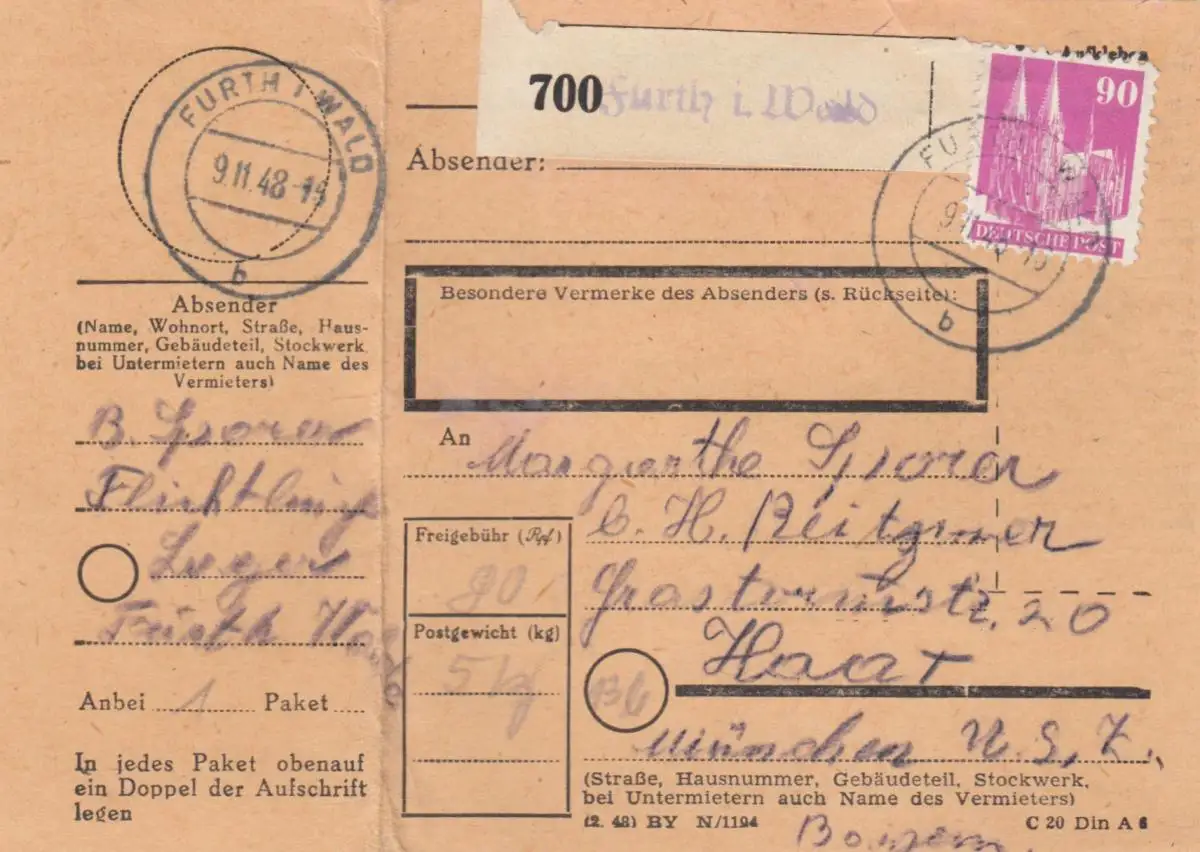 Aufkleben
90
DEUTSCHE POST
700 Furth i. Wald
FURTH i WALD
9.11.48-14
b
FURTH i WALD
9.11.48
b
Absender:
Besondere Vermerke des Absenders (s. Rückseite):
Absender
(Name, Wohnort, Straße, Haus-
nummer, Gebäudeteil, Stockwerk
bei Untermietern auch Name des
Vermieters)
B. Sporer
Flichtlings
Lager
Furth Wald
Anbei 1 Paket
In jedes Paket obenauf
ein Doppel der Aufschrift
legen
An Margarethe Sporer
C. H. Reitzmer
20
Haar
München U.S.Z.
Bayern
Freigebühr (Rpf)
90
Postgewicht (kg)
5 kg
13b
(Straße, Hausnummer, Gebäudeteil, Stockwerk,
bei Untermietern auch Name des Vermieters)
(2. 48) BY N/1194
C 20 Din A 6